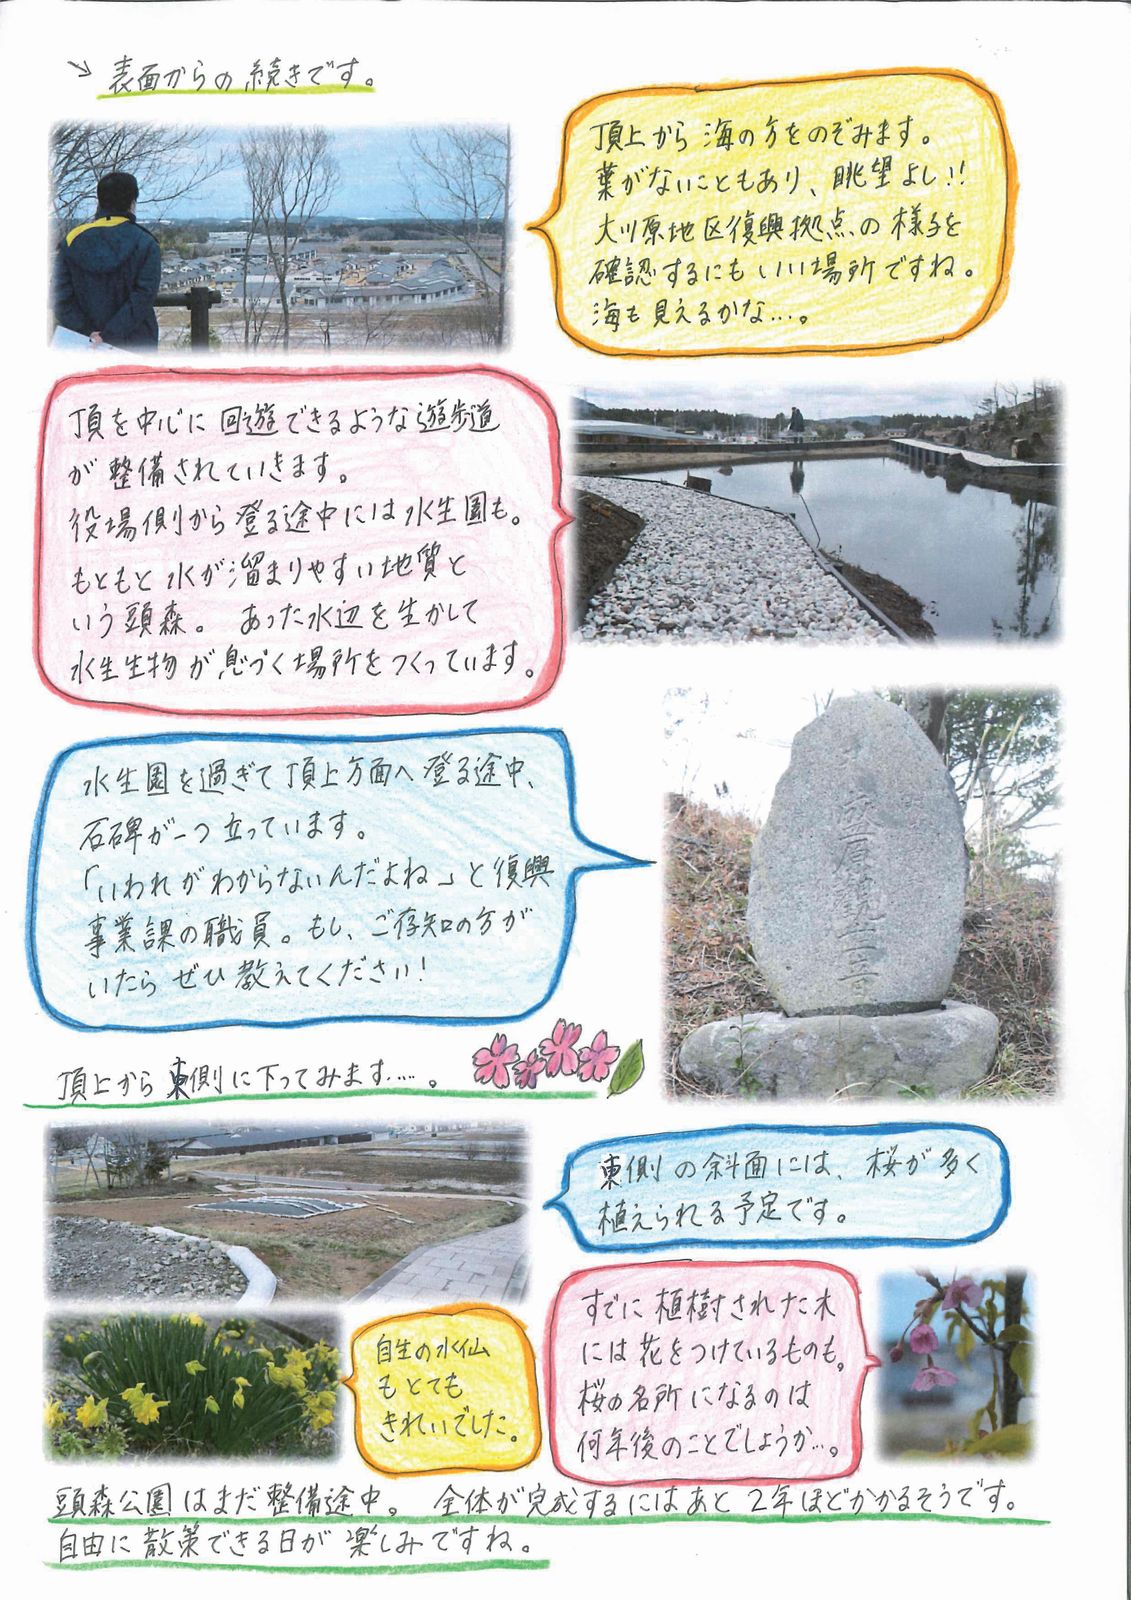 ↘ 表面からの続きです。
頂上から海の方をのぞみます。
葉がないこともあり、眺望よし!!
大川原地区復興拠点の様子を
確認するにもいい場所ですね。
海も見えるかな…。
頂を中心に回遊できるような遊歩道
が整備されていきます。
役場側から登る途中には水生園も。
もともと水が溜まりやすい地質と
いう頭森。 あった水辺を生かして
水生生物が息づく場所をつくっています。
水生園を過ぎて頂上方面へ登る途中、
石碑が一つ立っています。
「いわれがわからないんだよね」と復興
事業課の職員。もし、ご存知の方が
いたらぜひ教えてください!
観世音
頂上から東側に下ってみます……。
東側の斜面には、桜が多く
植えられる予定です。
すでに植樹された木
には花をつけているものも。
桜の名所になるのは
何年後のことでしょうか…。
自生の水仙
もとても
きれいでした。
頭森公園はまだ整備途中。 全体が完成するにはあと2年ほどかかるそうです。
自由に散策できる日が楽しみですね。